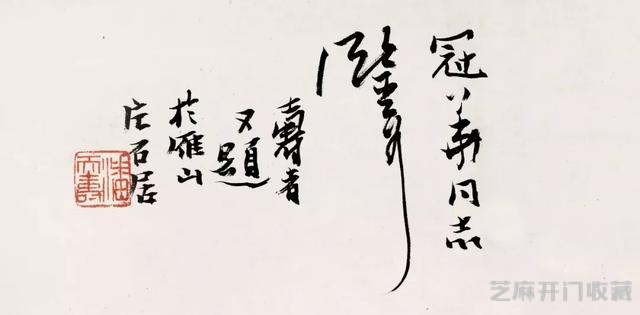 冠华同志
鑒
壽者
又題
於雁山
石居
潘天壽
芝麻开门收藏